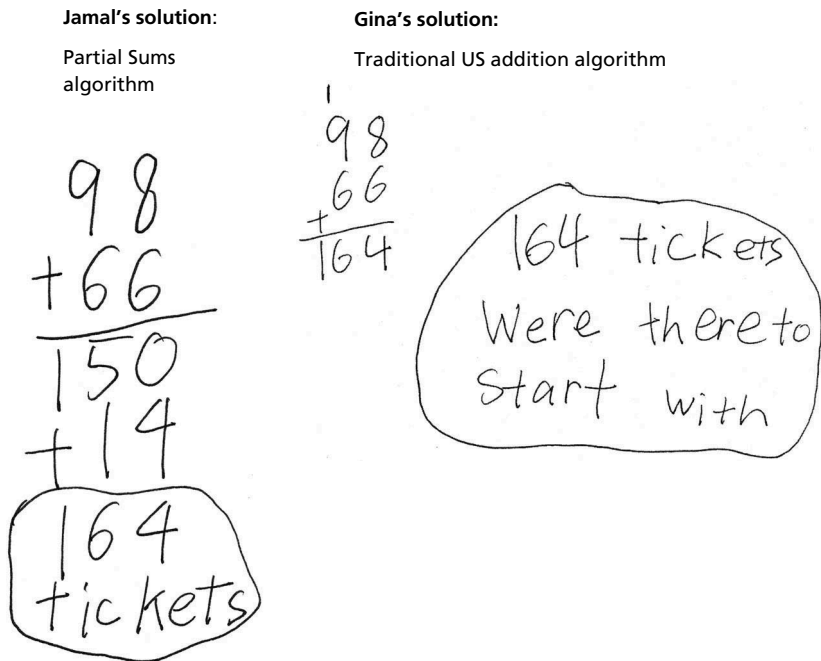 Jamal's solution:
Partial Sums
algorithm
98
+66
150
+14
164
tickets
Gina's solution:
Traditional US addition algorithm
1
98
+66
164
164 tickets
Were there to
Start with